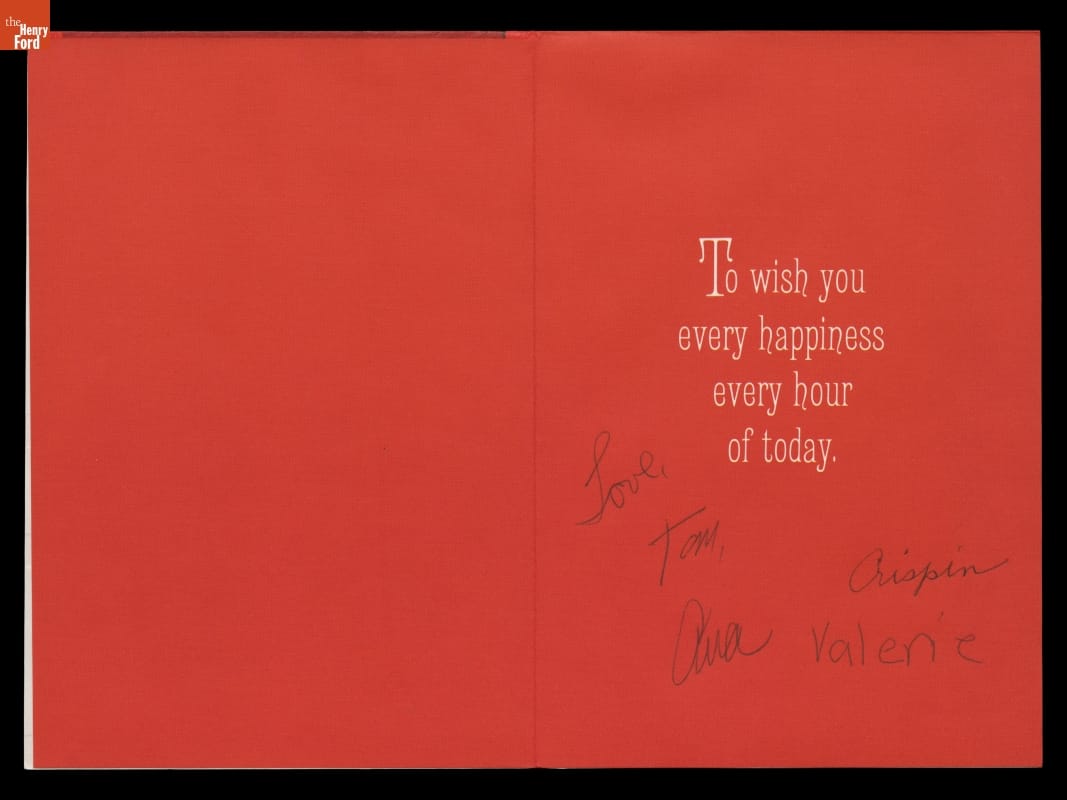 the
Henry
Ford
To wish you
every happiness
every hour
of today.
Love,
Tom,
Crispin
Ava
Valerie